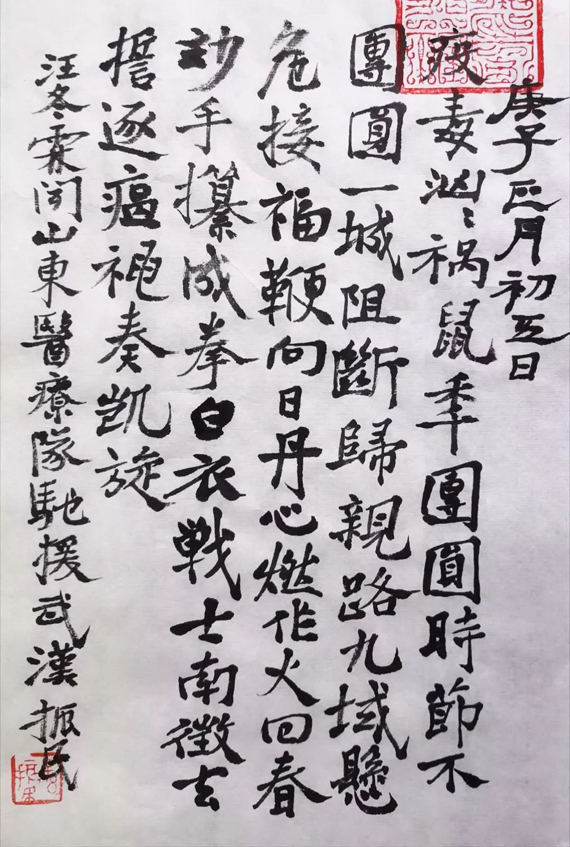 庚子正月初五日
疫毒汹〻祸鼠秊團圓時節不
團圓一城阻斷歸親路九域懸
危接福鞭向日丹心燃作火回春
妙手攥成拳白衣戦士南徵去
誓逐瘟神奏凯旋
汪冬霖闻山東醫療隊馳援武漢振民